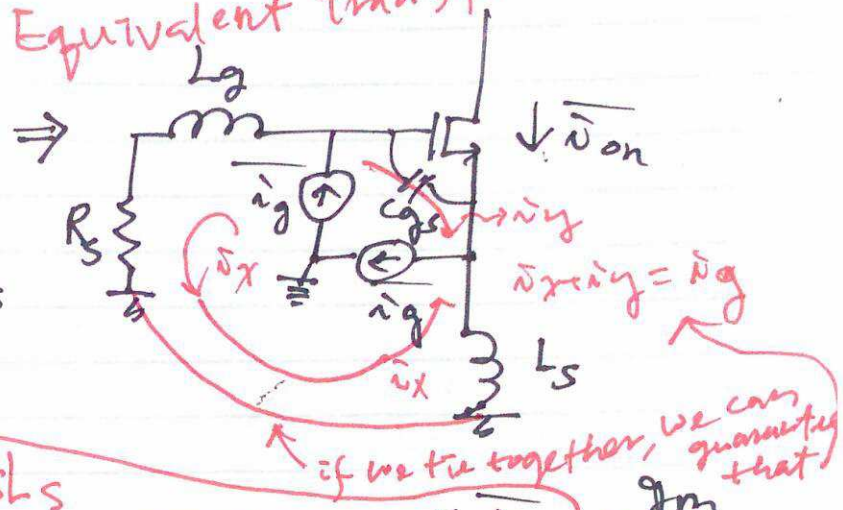 Equivalent
Lg
⇒
↓ ion
Rs
ig
Cgs
→ iy
ix
ix + iy = ig
ig
ix
Ls
if we tie together, we can
guarantee
that
Ls
gm